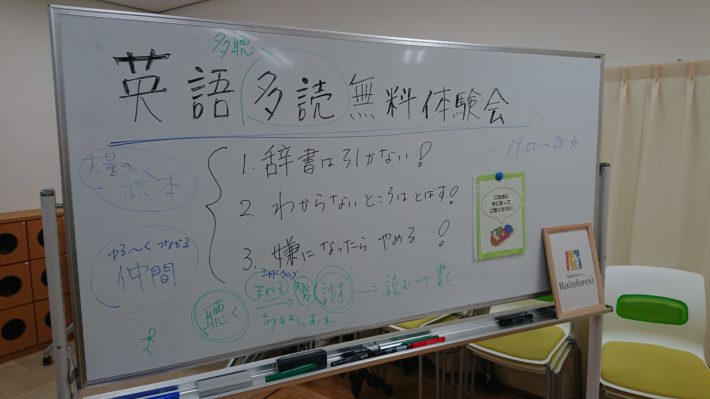 多聴
英語多読無料体験会
19:00~20:30
大量の
絵本
ゆる~くつながる
仲間
1. 辞書は引かない!
2 わからないところはとばす!
3. 嫌になったら やめる !
聴く
まねる
話す
→読む→書く
ご自由に
手に取って
ご覧ください
Rainforest